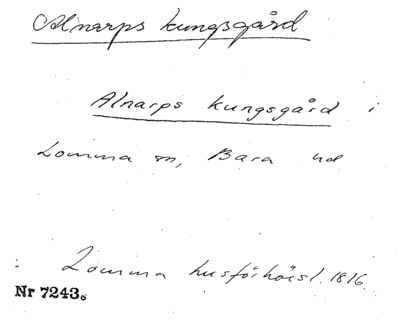 Alnarps kungsgård
Alnarps kungsgård i
Lomma sn, Bara hd
Lomma husförhörsl. 1816.
Nr 7243.